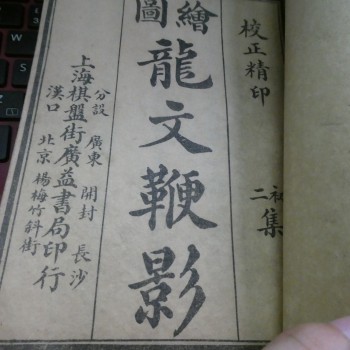 校正精印
初二集
繪圖
龍文鞭影
分設 廣東 開封 長沙
上海棋盤街廣益書局印行
漢口 北京楊梅竹斜街